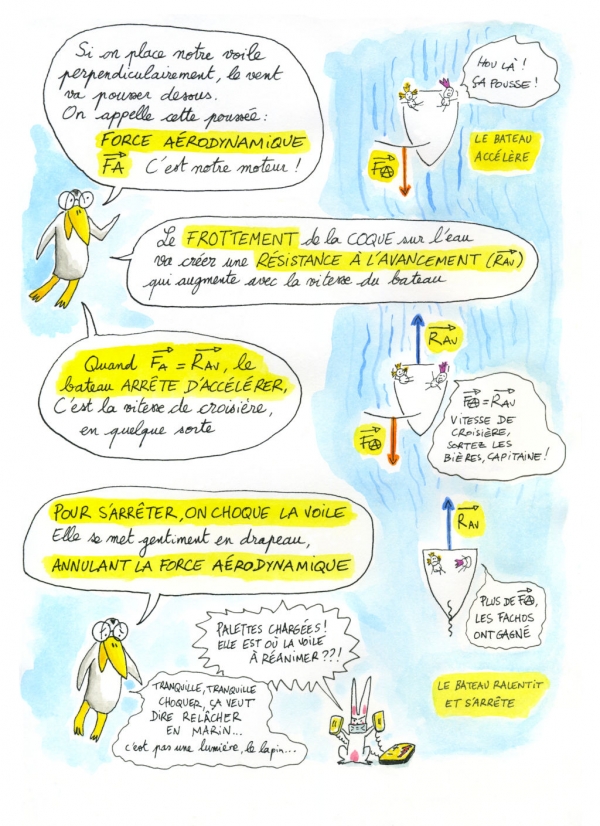 Si on place notre voile
perpendiculairement, le vent
va pousser dessus.
On appelle cette poussée :
FORCE AÉRODYNAMIQUE
FA C'est notre moteur !
HOU LÀ !
ÇA POUSSE !
LE BATEAU
ACCÉLÈRE
FA
Le FROTTEMENT de la COQUE sur l'eau
va créer une RÉSISTANCE À L'AVANCEMENT (RAV)
qui augmente avec la vitesse du bateau
RAV
Quand FA = RAV, le
bateau ARRÊTE D'ACCÉLÉRER,
C'est la vitesse de croisière,
en quelque sorte
FA = RAV
VITESSE DE
CROISIÈRE,
SORTEZ LES
BIÈRES, CAPITAINE !
FA
POUR S'ARRÊTER, ON CHOQUE LA VOILE
Elle se met gentiment en drapeau,
ANNULANT LA FORCE AÉRODYNAMIQUE
RAV
PLUS DE FA,
LES FACHOS
ONT GAGNÉ
PALETTES CHARGÉES !
ELLE EST OÙ LA VOILE
À RÉANIMER ??!
TRANQUILLE, TRANQUILLE
CHOQUER, ÇA VEUT
DIRE RELÂCHER
EN MARIN...
c'est pas une lumière, le lapin...
LE BATEAU RALENTIT
ET S'ARRÊTE